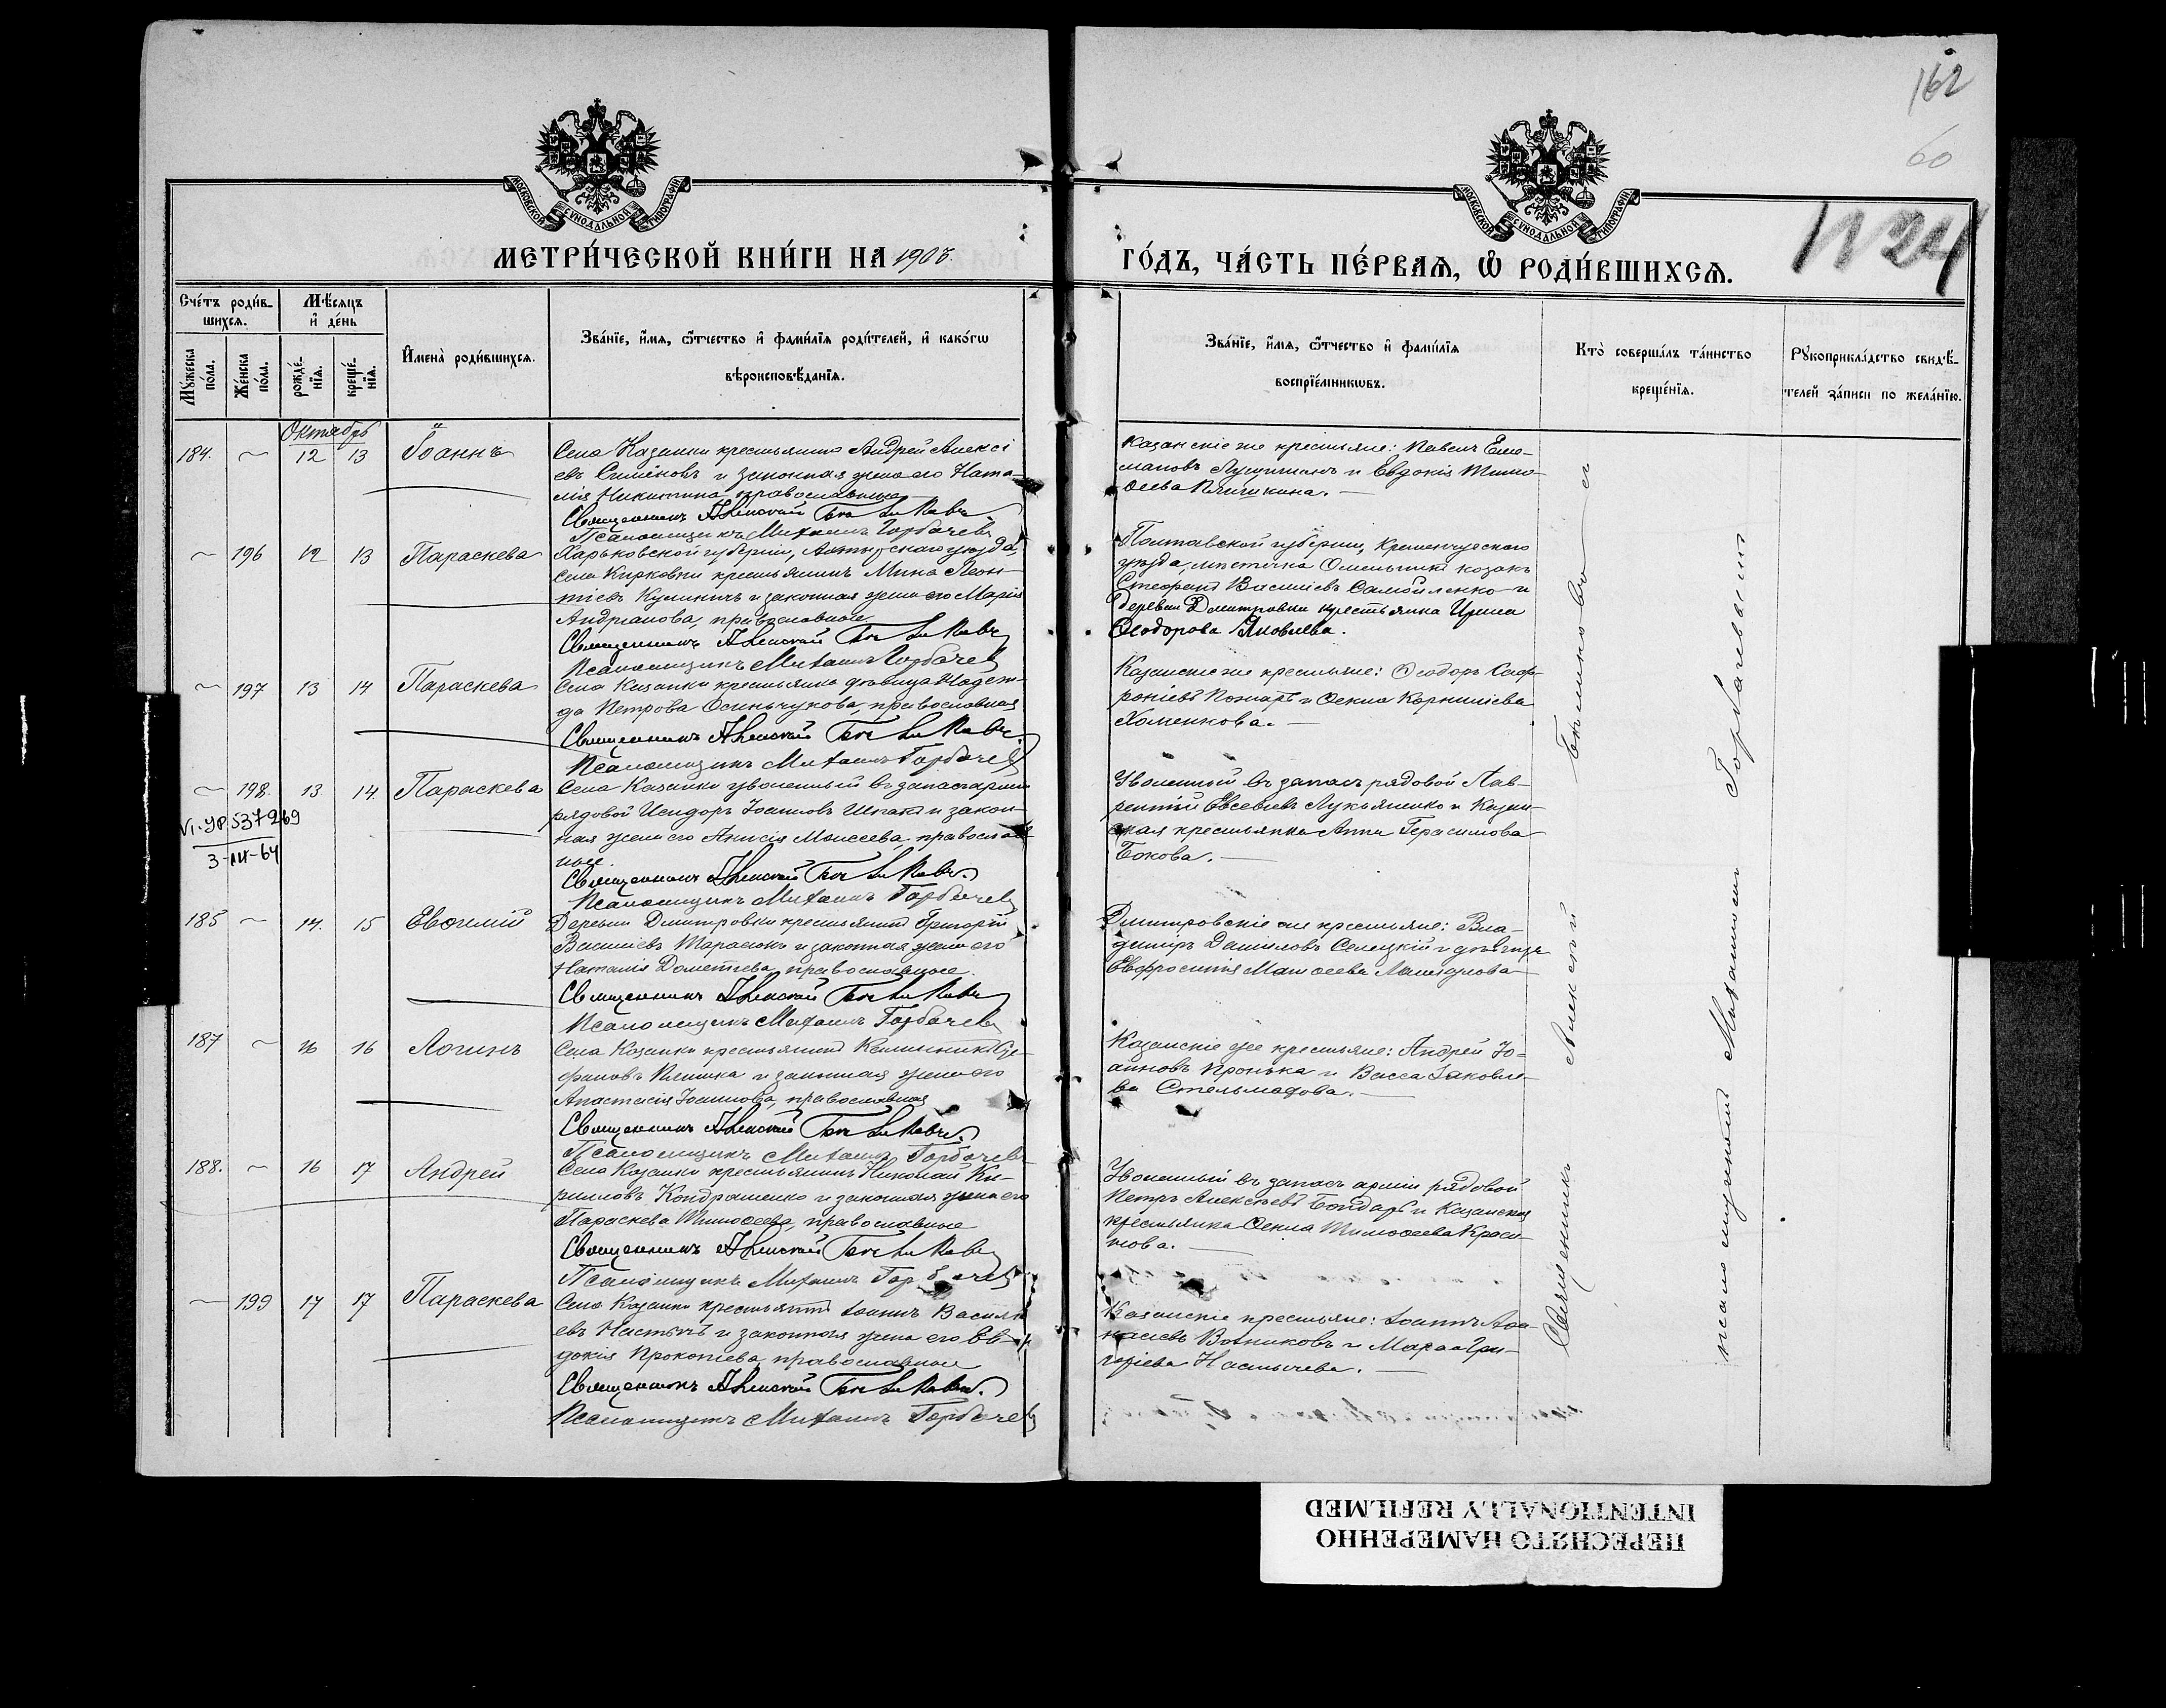 162
60
№ 24
МОСКОВСКОЙ СѴНОДАЛЬНОЙ ТИПОГРАФІИ
МЕТРИ́ЧЕСКОЙ КНИ́ГИ НА 1903.
МОСКОВСКОЙ СѴНОДАЛЬНОЙ ТИПОГРАФІИ
ГО́ДЪ, ЧА́СТЬ ПЕ́РВАѦ, Ѡ҆ РОДИ́ВШИХСѦ.
Сче́тъ роди́в-
шихсѧ.
Му́жеска
по́ла.
Же́нска
по́ла.
Мѣ́сяцъ
и҆ де́нь
рожде́-
нїѧ.
креще́-
нїѧ.
И҆мена̀ роди́вшихсѧ.
Зва́нїе, и҆́мѧ, ѻ҆́тчество и҆ фами́лїѧ роди́телей, и҆ како́гѡ
вѣроисповѣ́данїѧ.
Зва́нїе, и҆́мѧ, ѻ҆́тчество и҆ фами́лїѧ
воспрїе́мникѡвъ.
Кто̀ соверша́лъ та́инство
креще́нїѧ.
Рꙋкоприкла́дство свидѣ́-
телей за́писи по жела́нїю.
Октябрь
184. ~ 12 13 Іоаннъ
Села Казанки крестьянинъ Андрей Алексі
евъ Сименовъ и законная жена его Ната-
лія Никитина, православные
Священникъ Алексій
Псаломщикъ Михаилъ Горбачевъ
Казанскіе же крестьяне: Павелъ Еме-
ліановъ и Евдокія Тимо-
ѳеева Плишкина.
~ 196 12 13 Параскева
Харьковской губерніи, Ахтырскаго уѣзда,
села Кириковки крестьянинъ Мина Леон-
тіевъ Куличъ и законная жена его Марія
Андріанова, православные
Священникъ Алексій
Псаломщикъ Михаилъ Горбачевъ
Полтавской губерніи, Кременчугскаго
уѣзда, мѣстечка Омельника козакъ
Стефанъ Василіевъ Самойленко и
деревни Дмитровки крестьянка Ирина
Ѳеодорова Яковлева.
~ 197 13 14 Параскева
Села Казанки крестьянка дѣвица Надеж-
да Петрова Осиньчукова, православная
Священникъ Алексій
Псаломщикъ Михаилъ Горбачевъ
Казанскіе же крестьяне: Ѳеодоръ Соф-
роніевъ Пожаръ и Ѳекла Корниліева
Хоменкова.
~ 198. 13 14. Параскева
VI-УР 537269
3-IX-64
Села Казанки уволенный въ запасъ арміи
рядовой Исидоръ Іоанновъ Шпакъ и закон-
ная жена его Анисія Моисеева, православ
ные.
Священникъ Алексій
Псаломщикъ Михаилъ Горбачевъ
Уволенный въ запасъ рядовой Лав-
рентій Евсевіевъ Лукьяненко и Казан-
ская крестьянка Анна Герасимова
Бокова.
185 ~ 14. 15 Евѳимій
Деревни Дмитровки крестьянинъ Григорій
Василіевъ Тарасюкъ и законная жена его
Наталія Дометіева, православные.
Священникъ Алексій
Псаломщикъ Михаилъ Горбачевъ
Дмитровскіе же крестьяне: Вла-
диміръ Даниловъ Селецкій и дѣвица
Евфросинія Матѳеева
187 ~ 16 16 Логинъ
Села Казанки крестьянинъ
Плишка и законная жена его
Анастасія Іоаннова, православные
Священникъ Алексій
Псаломщикъ Михаилъ Горбачевъ
Казанскіе же крестьяне: Андрей Іо-
анновъ Пронька и Васса Іаковле-
ва Стельмахова.
188. ~ 16 17 Андрей
Села Казанки крестьянинъ Николай Ки-
рилловъ Кондратенко и законная жена его
Параскева Тимоѳеева, православные
Священникъ Алексій
Псаломщикъ Михаилъ Горбачевъ
Уволенный въ запасъ арміи рядовой
Петръ Алексѣевъ Бондарь и Казанская
крестьянка Ѳекла Тимоѳеева
~ 199 17 17 Параскева
Села Казанки крестьянинъ Іоаннъ Василі
евъ Настычъ и законная жена его Ев-
докія Прокопіева, православные
Священникъ Алексій
Псаломщикъ Михаилъ Горбачевъ
Казанскіе крестьяне: Іоаннъ Аѳа-
насіевъ Вотниковъ и Марѳа Гри-
горіева Настычева.
Священникъ Алексій съ
псаломщикомъ Михаиломъ Горбачевымъ
ПЕРЕСНЯТО НАМЕРЕННО
INTENTIONALLY REFILMED